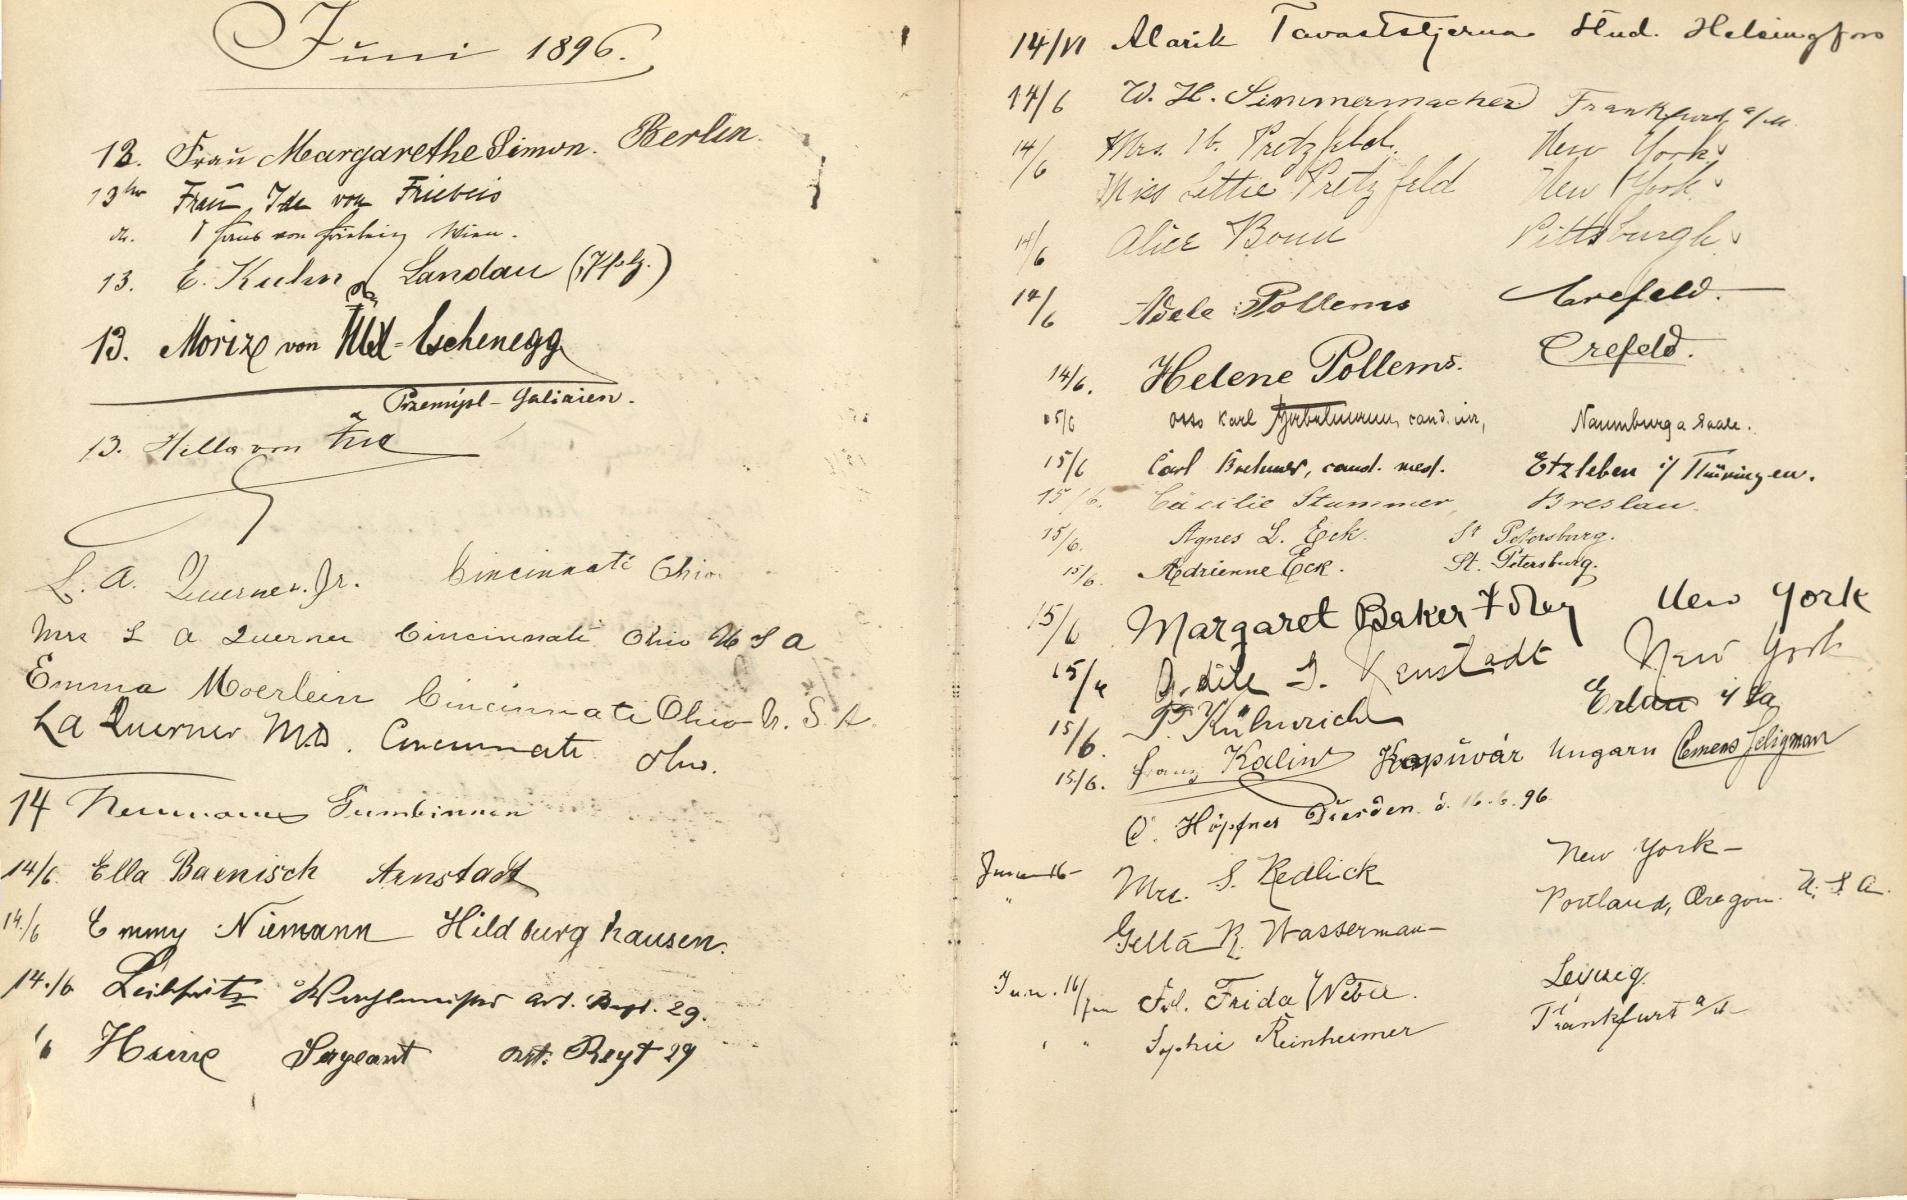 Juni 1896.
12. Frau Margarethe Simon. Berlin.
13 Frau Ida von Friebeis
von Wien.
13. E. Kuhn, Landau (Pfalz.)
13. Moriz von Eschenegg
Przemysl - Galizien.
13. Hilla von
L. A. Querner Jr. Cincinnati Ohio
Mrs L A Querner Cincinnati Ohio U S A
Emma Moerlein Cincinnati Ohio U. S. A
L A Querner M.D. Cincinnati Ohio.
14 Neumann Gumbinnen
14/6. Ella Baenisch Arnstadt
14/6 Emmy Niemann Hildburghausen.
14./6 Wachtmeister Art. Regt. 29.
" Heine Sergeant Art. Regt 29
14/VI Alarik Tavaststjerna Stud. Helsingfors
14/6 W. H. Simmermacher Frankfurt a/M
14/6 Mrs. Pretzfeld. New York.
Miss Lettie Pretzfeld New York.
14/6 Alice Bonn Pittsburgh
14/6 Adele Pollems Crefeld.
14/6. Helene Pollems. Crefeld.
15/6 Otto Karl cand. iur, Naumburg a Saale.
15/6 Carl Boehmer, cand. med. Etzleben i/ Thüringen.
15/6. Cäcilie Stummer, Breslau.
15/6. Agnes L. Eck. St Petersburg.
15/6. Adrienne Eck. St. Petersburg.
15/6 Margaret Baker New York
15/6 New York
15/6. i/ Sa
15/6. Franz Kalin Kapuvár Ungarn Clemens Seligman
O. Höpfner Dresden. d. 16.6.96.
June 16- Mrs. S. Redlick New York-
" Gella R. Wasserman- Portland, Oregon. U. S. A.
Juni. 16/ Frl. Frida Weber. Leipzig.
" " Sophie Reinheimer Frankfurt a/M